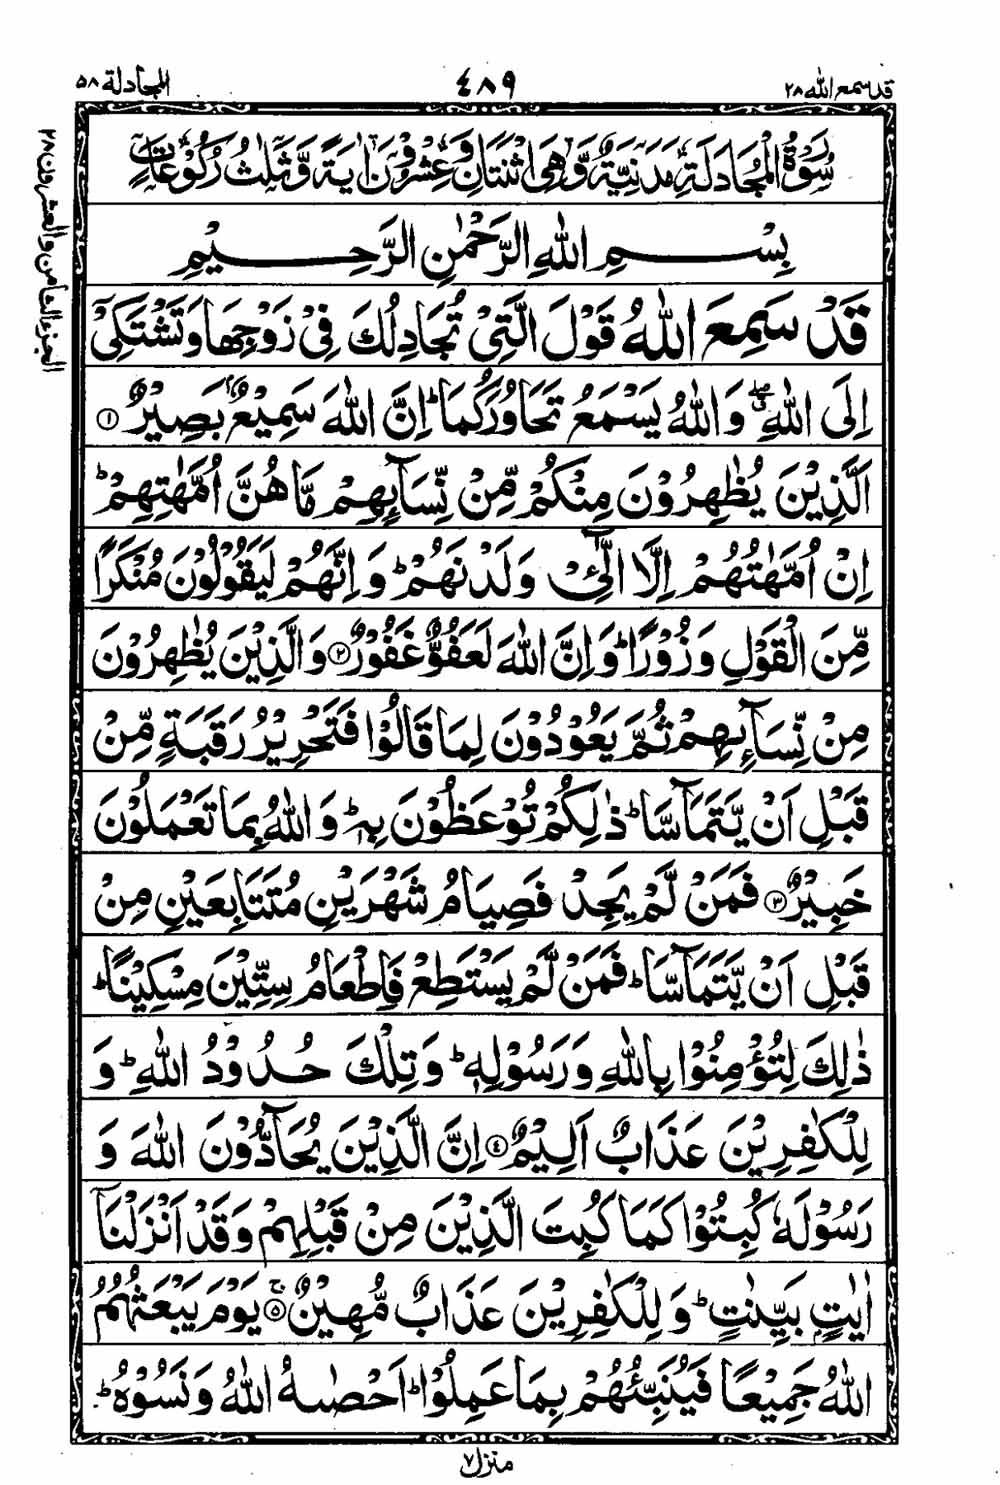 قد سمع الله ۲۸
٤٨٩
المجادلة ۵۸
سُوْرَةُ الْمُجَادَلَةِ مَدَنِيَّةٌ وَّهِىَ اثْنَتَانِ وَعِشْرُوْنَ اٰيَةً وَّثَلٰثُ رُكُوْعَاتٍ
بِسْمِ اللهِ الرَّحْمٰنِ الرَّحِيْمِ
قَدْ سَمِعَ اللهُ قَوْلَ الَّتِىْ تُجَادِلُكَ فِىْ زَوْجِهَا وَتَشْتَكِىْٓ
اِلَى اللهِ ۖق وَاللهُ يَسْمَعُ تَحَاوُرَكُمَا ؕ اِنَّ اللهَ سَمِيْعٌۢ بَصِيْرٌ ①
اَلَّذِيْنَ يُظٰهِرُوْنَ مِنْكُمْ مِّنْ نِّسَآئِهِمْ مَّا هُنَّ اُمَّهٰتِهِمْ ؕ
اِنْ اُمَّهٰتُهُمْ اِلَّا الّٰٓئِىْ وَلَدْنَهُمْ ؕ وَاِنَّهُمْ لَيَقُوْلُوْنَ مُنْكَرًا
مِّنَ الْقَوْلِ وَزُوْرًا ؕ وَاِنَّ اللهَ لَعَفُوٌّ غَفُوْرٌ ② وَالَّذِيْنَ يُظٰهِرُوْنَ
مِنْ نِّسَآئِهِمْ ثُمَّ يَعُوْدُوْنَ لِمَا قَالُوْا فَتَحْرِيْرُ رَقَبَةٍ مِّنْ
قَبْلِ اَنْ يَّتَمَآسَّا ؕ ذٰلِكُمْ تُوْعَظُوْنَ بِهٖ ؕ وَاللهُ بِمَا تَعْمَلُوْنَ
خَبِيْرٌ ③ فَمَنْ لَّمْ يَجِدْ فَصِيَامُ شَهْرَيْنِ مُتَتَابِعَيْنِ مِنْ
قَبْلِ اَنْ يَّتَمَآسَّا ؕ فَمَنْ لَّمْ يَسْتَطِعْ فَاِطْعَامُ سِتِّيْنَ مِسْكِيْنًا ؕ
ذٰلِكَ لِتُؤْمِنُوْا بِاللهِ وَرَسُوْلِهٖ ؕ وَتِلْكَ حُدُوْدُ اللهِ ؕ وَ
لِلْكٰفِرِيْنَ عَذَابٌ اَلِيْمٌ ④ اِنَّ الَّذِيْنَ يُحَآدُّوْنَ اللهَ وَ
رَسُوْلَهٗ كُبِتُوْا كَمَا كُبِتَ الَّذِيْنَ مِنْ قَبْلِهِمْ وَقَدْ اَنْزَلْنَآ
اٰيٰتٍۭ بَيِّنٰتٍ ؕ وَلِلْكٰفِرِيْنَ عَذَابٌ مُّهِيْنٌ ۚ ⑤ يَوْمَ يَبْعَثُهُمُ
اللهُ جَمِيْعًا فَيُنَبِّئُهُمْ بِمَا عَمِلُوْا ؕ اَحْصٰىهُ اللهُ وَنَسُوْهُ ؕ
منزل ۷
الجزء الثامن والعشرون ۲۸